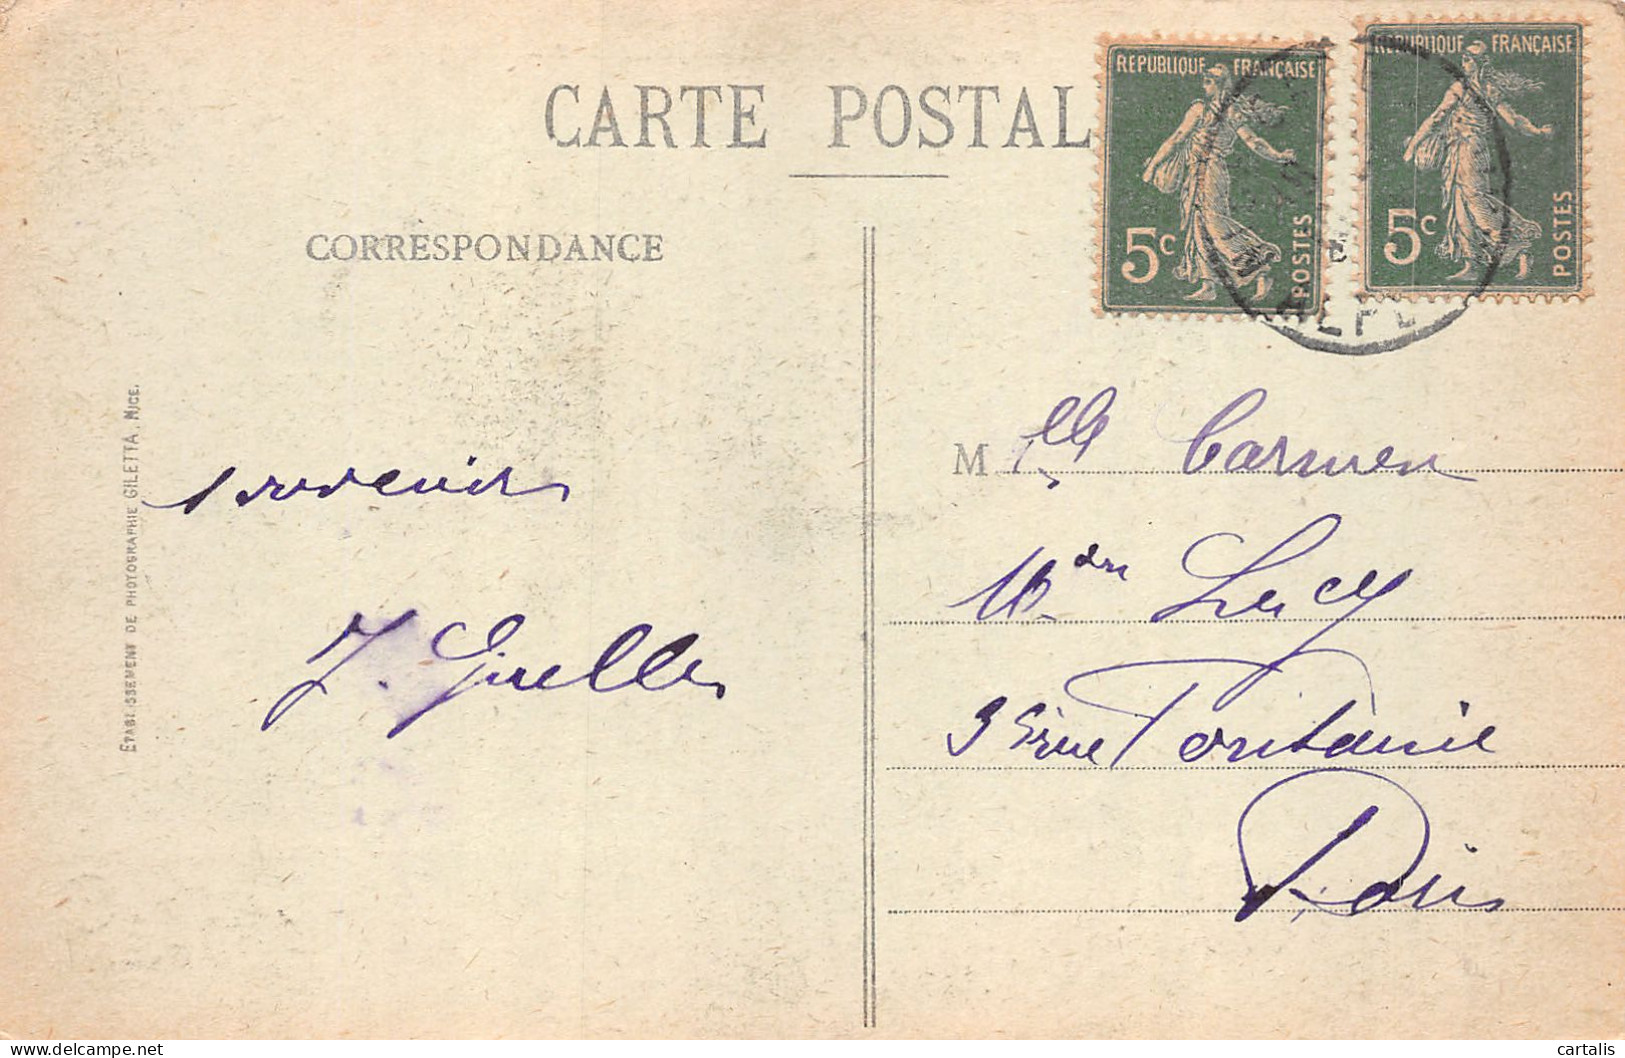 CARTE POSTAL
RÉPUBLIQUE FRANÇAISE
5c
POSTES
RÉPUBLIQUE FRANÇAISE
5c
POSTES
CORRESPONDANCE
ETABLISSEMENT DE PHOTOGRAPHIE GILETTA, NICE.
souvenir
J.
Melle Carmen
Lucy
rue Fontaine
Paris
delcampe.net
cartalis